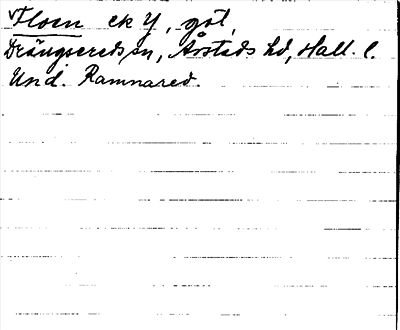 Floen ek Y, göt,
Drängsereds sn, Årstads hd, Hall. l.
Und. Ramnared.